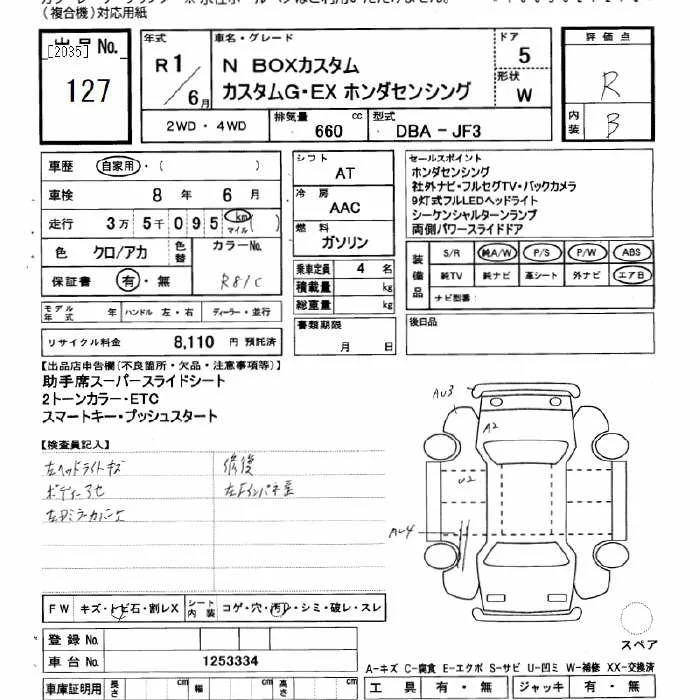 (複合機)対応用紙
出品No.
[2035]
127
年式
R1/6月
車名・グレード
N BOXカスタム
カスタムG・EX ホンダセンシング
ドア
5
形状
W
評価点
R
内装
B
2WD・4WD
排気量
660 cc
型式
DBA - JF3
車歴 自家用・( )
車検 8年 6月
走行 3万5千095 km マイル ( )
色 クロ/アカ
色替
カラーNo.
R81C
保証書 有・無
シフト
AT
冷房
AAC
燃料
ガソリン
乗車定員 4 名
積載量 kg
総重量 kg
書類期限
月 日
セールスポイント
ホンダセンシング
社外ナビ・フルセグTV・バックカメラ
9灯式フルLEDヘッドライト
シーケンシャルターンランプ
両側パワースライドドア
装備品
S/R 純A/W P/S P/W ABS
純TV 純ナビ 革シート 外ナビ エアB
ナビ型番:
後日品
モデル年式 年
ハンドル 左・右
ディーラー・並行
リサイクル料金 8,110 円 預託済
【出品店申告欄(不良箇所・欠品・注意事項等)】
助手席スーパースライドシート
2トーンカラー・ETC
スマートキー・プッシュスタート
【検査員記入】
左ヘッドライトキズ
修後
左Fインパネ歪
AU3
A2
U2
AU4
FW キズ・トビ石・割レX
シート内装 コゲ・穴・汚レ・シミ・破レ・スレ
登録No.
車台No. 1253334
スペア
A-キズ C-腐食 E-エクボ S-サビ U-凹ミ W-補修 XX-交換済
車庫証明用 長さ cm 幅 cm 高さ cm
工具 有・無 ジャッキ 有・無